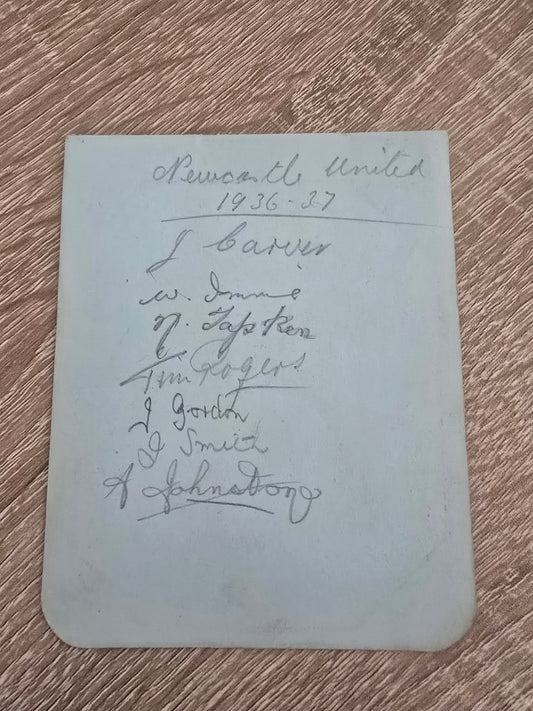 Newcastle United
1936-37
J Carver
W. Imrie
N. Tapken
Tim Rogers
J Gordon
J Smith
A Johnston